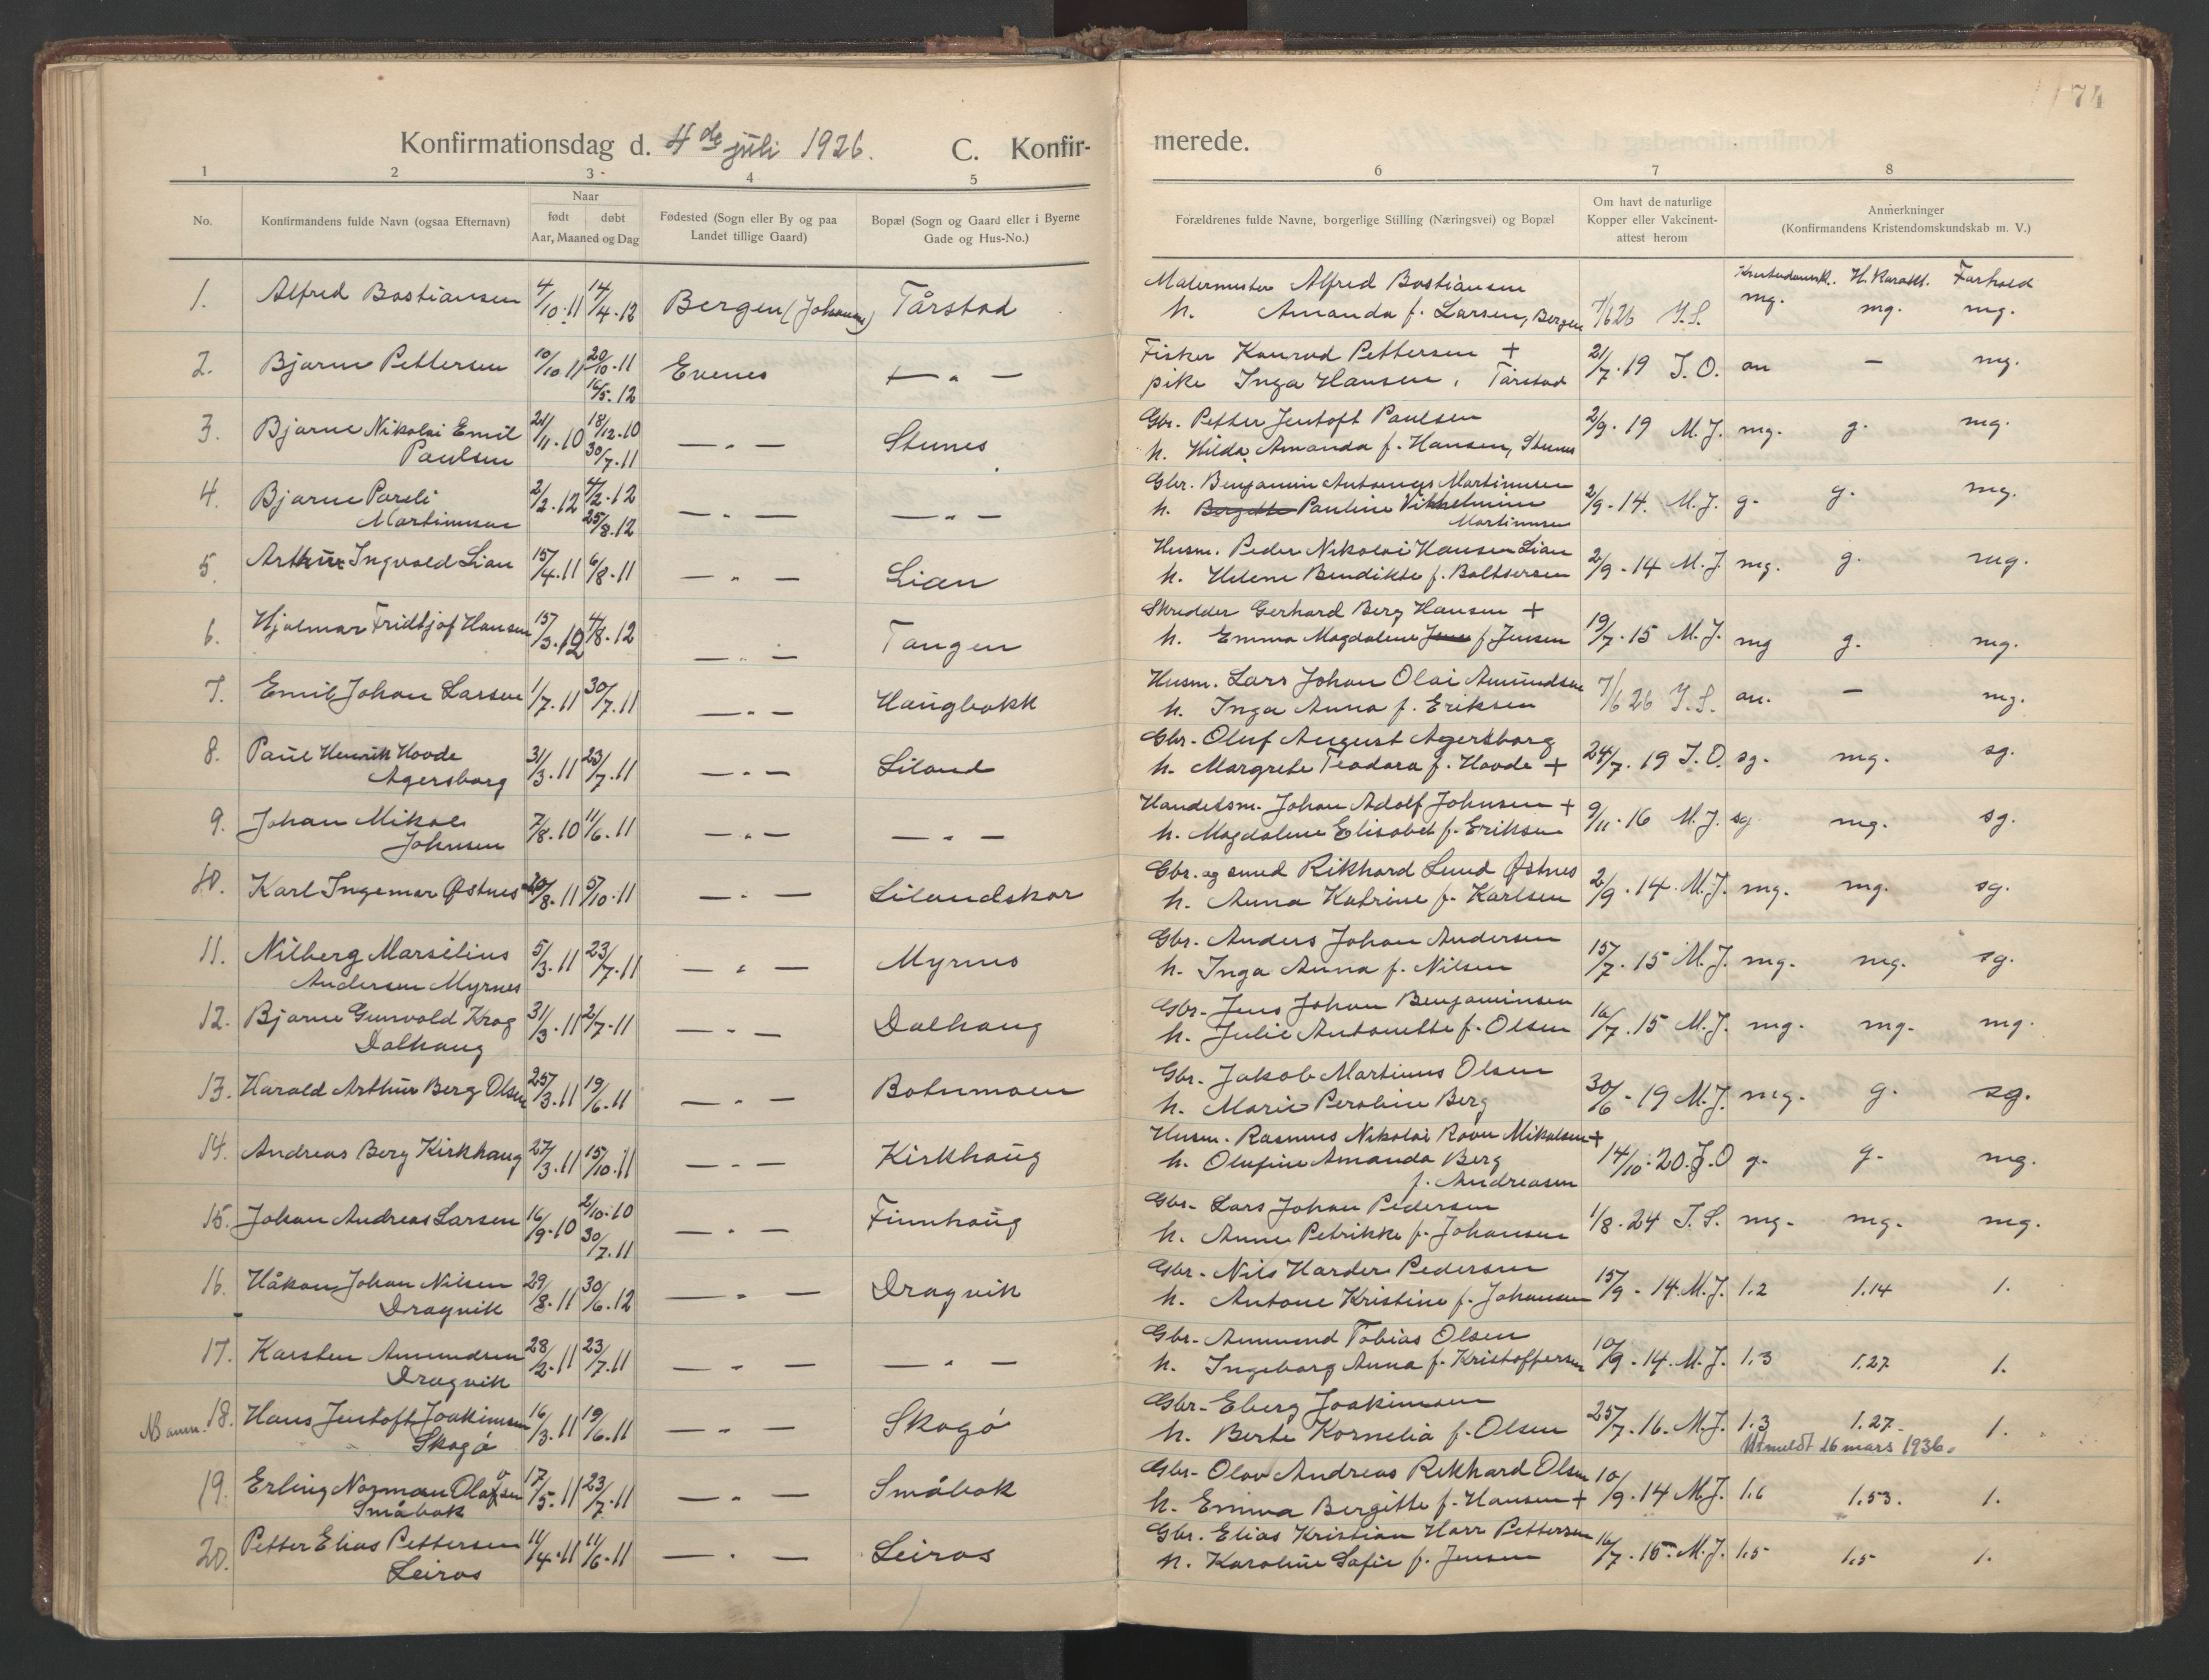 74
Konfirmationsdag d. 4de juli 1926.
C. Konfir-
merede.
1 2 3 4 5 6 7 8
No.
Konfirmandens fulde Navn (ogsaa Efternavn)
Naar
født døbt
Aar, Maaned og Dag
Fødested (Sogn eller By og paa
Landet tillige Gaard)
Bopæl (Sogn og Gaard eller i Byerne
Gade og Hus-No.)
Forældrenes fulde Navne, borgerlige Stilling (Næringsvei) og Bopæl
Om havt de naturlige
Kopper eller Vakcinent-
attest herom
Anmerkninger
(Konfirmandens Kristendomskundskab m. V.)
Kristendomsk. H. Karakt. Forhold
1. Alfred Bastiansen 4/10.11 14/4.12 Bergen (Johannes) Tårstad Malermester Alfred Bastiansen
h. Amanda f. Larsen, Bergen 7/6 26 I.S. mg. mg. mg.
2. Bjarne Pettersen 10/10 11 20/10.11 Evenes — " — Fisker Konrad Pettersen + 21/7.19 J.O. an — mg.
16/5.12 pike Inga Hansen, Tårstad
3. Bjarne Nikolai Emil 21/11.10 18/12.10 — " — Stunes Gbr. Petter Jentoft Paulsen 2/9.19 M.J. mg. g. mg.
Paulsen 30/7.11 h. Hilda Amanda f. Hansen, Stunes
4. Bjarne Pareli 2/2.12 4/2.12 — " — — " — Gbr. Benjamin Antonius Martinusen 2/9.14. M.J. g. g. mg.
Martinusen 25/8.12 h. Bergitte Pauline Vilhelmine
Martinusen
5. Arthur Ingvald Lian 15/4.11 6/8.11 — " — Lian Husm. Peder Nikolai Hansen Lian 2/9.14 M.J. mg. g. mg.
h. Helene Bendikte f. Baltsersen
6. Hjalmar Fridtjof Hansen 15/3.12 4/8.12 — " — Tangen Skredder Gerhard Berg Hansen + 19/7.15 M.J. mg g. mg.
h. Emma Magdalene Jens f. Jensen
7. Emil Johan Larsen 1/7.11 30/7.11 — " — Haugbakk Husm. Lars Johan Olai Amundsen 7/6 26 I.S. an. — mg.
h. Inga Anna f. Eriksen
8. Paul Henrik Hovde 31/3.11 23/7.11 — " — Liland Gbr. Oluf August Agersborg 24/7.19 J.O. sg. mg. sg.
Agersborg h. Margrete Teodora f. Hovde +
9. Johan Mikal 7/8.10 11/6.11 — " — — " — Handelsm. Johan Adolf Johnsen + 9/11.16 M.J. sg mg. sg.
Johnsen h. Magdalene Elisabet f. Eriksen
10. Karl Ingemar Østnes 20/8.11 5/10.11 — " — Lilandskar Gbr. og smed Rikhard Lund Østnes 2/9.14. M.J. mg. mg. sg.
h. Anna Katrine f. Karlsen
11. Nilberg Marselius 5/3.11 23/7.11 — " — Myrnes Gbr. Anders Johan Andersen 15/7.15 M.J. mg. mg. sg.
Andersen Myrnes h. Inga Anna f. Nilsen
12. Bjarne Gunvald Krog 31/3.11 2/7.11 — " — Dalhaug Gbr. Jens Johan Benjaminsen 16/7.15 M.J. mg. mg. mg.
Dalhaug h. Julie Antonette f. Olsen
13. Harald Arthur Berg Olsen 25/3.11 19/6.11 — " — Botnmoen Gbr. Jakob Martinus Olsen 30/6.19 M.J. mg. g. sg.
h. Marie Peroline Berg
14. Andreas Berg Kirkhaug 27/3.11 15/10.11 — " — Kirkhaug Husm. Rasmus Nikolai Rovn Mikalsen + 14/10.20. J.O g. g. mg.
h. Olufine Amanda Berg
f. Andreasen
15. Johan Andreas Larsen 16/9.10 2/10.10 — " — Finnhaug Gbr. Lars Johan Pedersen 1/8.24 I.S. mg. mg. mg.
30/7.11 h. Anne Petrikke f. Johansen
16. Håkon Johan Nilsen 29/8.11 30/6.12 — " — Dragvik Gbr. Nils Harder Pedersen 15/9.14. M.J. 1.2 1.14 1.
Dragvik h. Antone Kristine f. Johansen
17. Karsten Amundsen 28/2.11 23/7.11 — " — — " — Gbr. Amund Tobias Olsen 10/9.14. M.J. 1.3 1.27 1.
Dragvik h. Ingeborg Anna f. Kristoffersen
NB anm. 18. Hans Jentoft Joakimsen 16/3.11 19/6.11 — " — Skogø Gbr. Eberg Joakimsen 25/7.16. M.J. 1.3 1.27 1.
Skogø h. Berte Kornelia f. Olsen Utmeldt 26 mars 1936.
19. Erling Norman Olafsen 17/5.11 23/7.11 — " — Småbak Gbr. Olav Andreas Rikhard Olsen 10/9.14 M.J. 1.6 1.53. 1.
Småbak h. Emma Bergitte f. Hansen +
20. Petter Elias Pettersen 11/4.11 11/6.11 — " — Leiros Gbr. Elias Kristian Harr Pettersen 16/7.15. M.J. 1.5 1.5 1.
Leiros h. Karoline Sofie f. Jensen